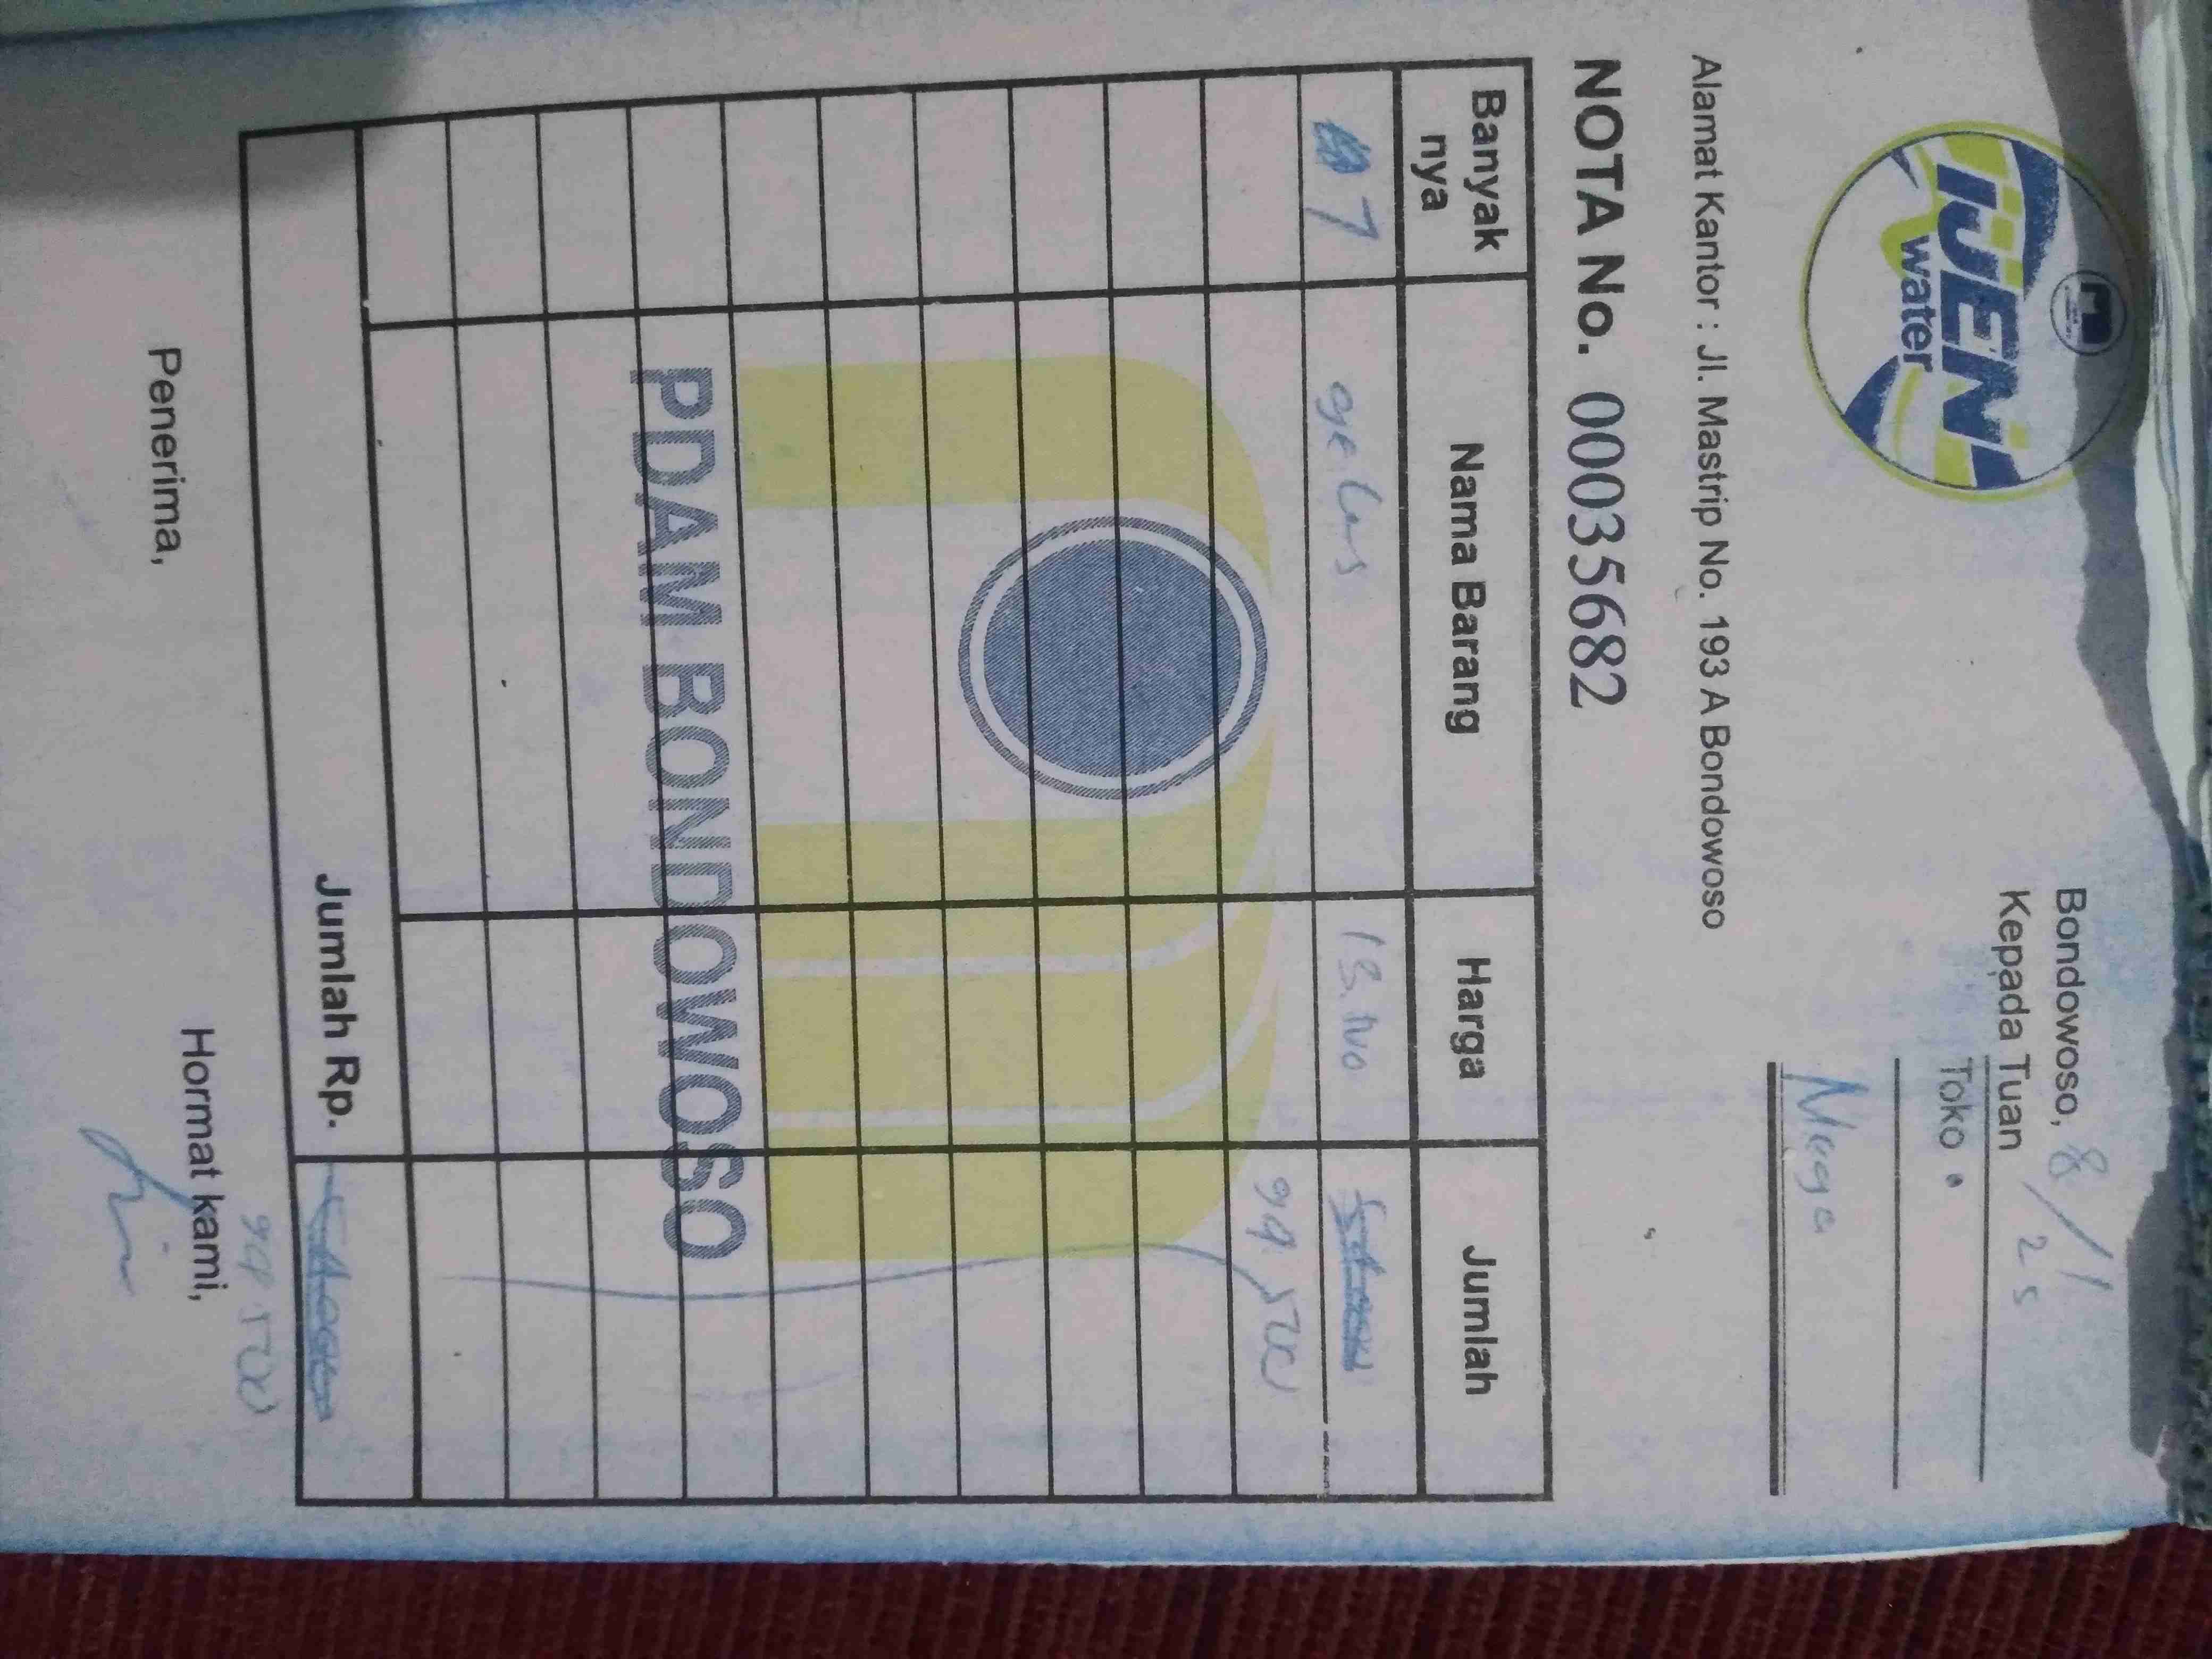 IJEN
water
Bondowoso, 8/1 25
Kepada Tuan
Toko
Alamat Kantor : Jl. Mastrip No. 193 A Bondowoso
NOTA No. 00035682
Banyak nya Nama Barang Harga Jumlah
7 gelas
PDAM BONDOWOSO
Jumlah Rp.
Penerima, Hormat kami,